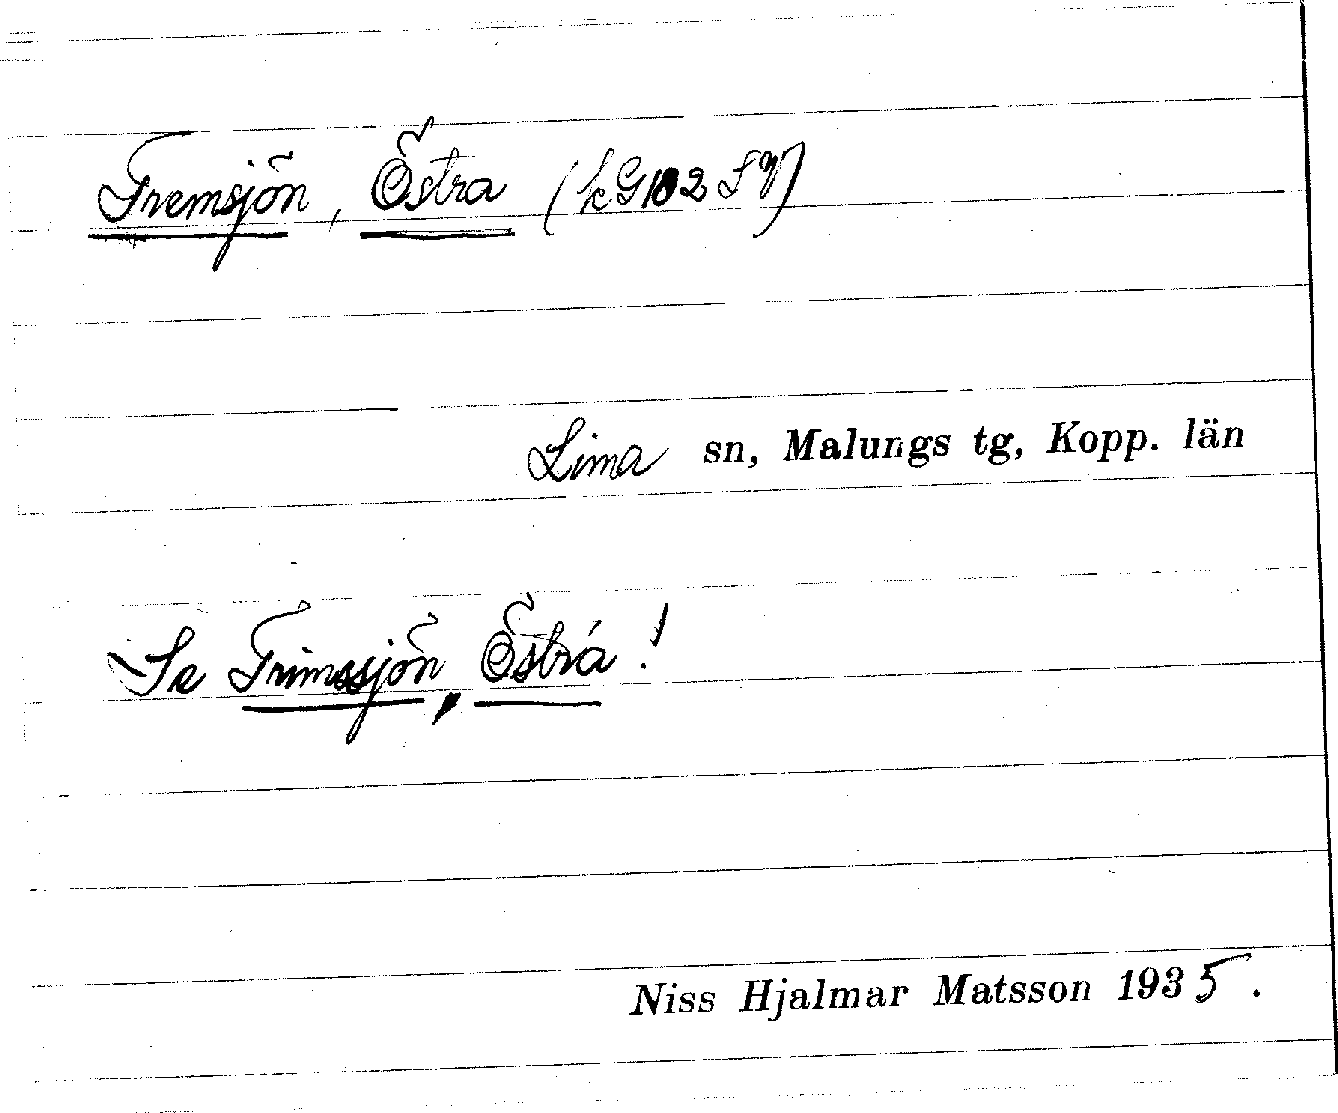 Tremsjön, Östra (kG102SV)
Lima sn, Malungs tg, Kopp. län
Se Trimssjön, Östra!
Niss Hjalmar Matsson 1935.